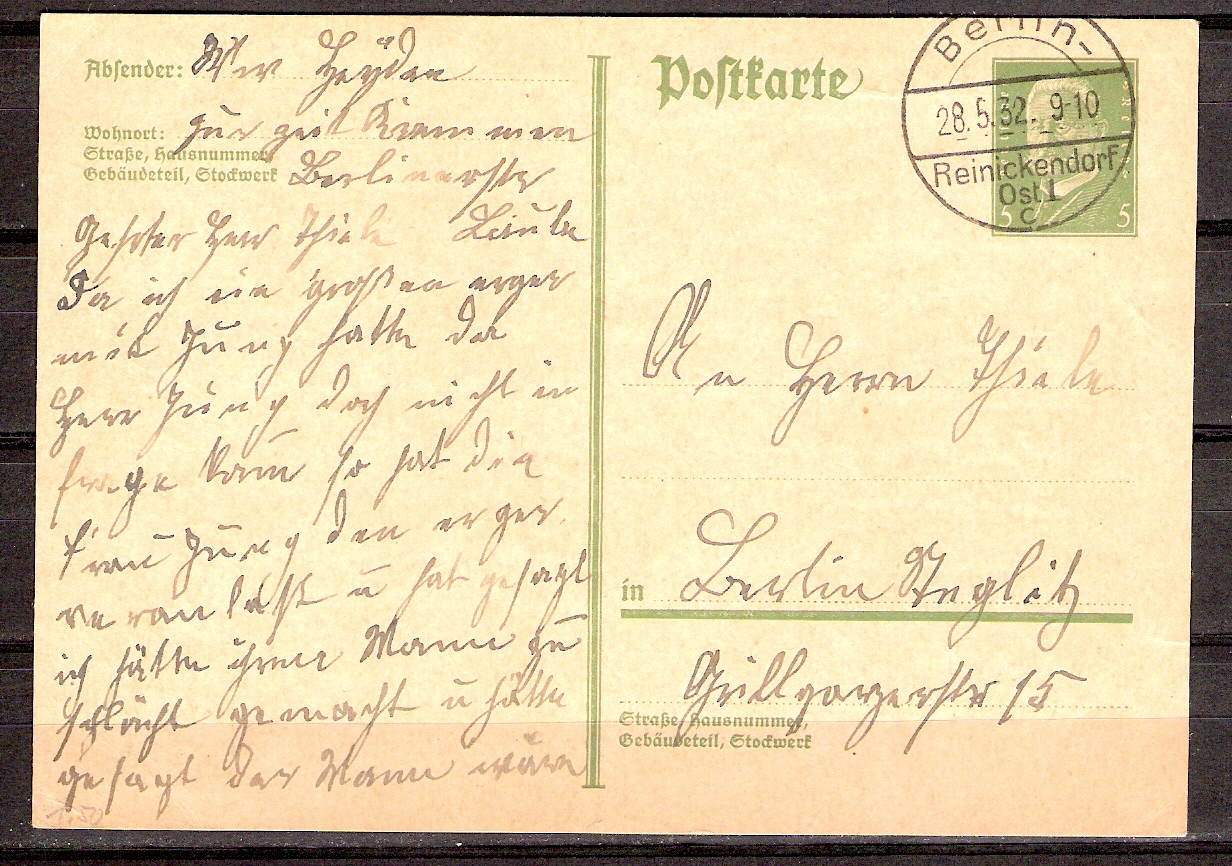 Absender: Ww Heyden
Wohnort: zur zeit Kremmen
Straße, Hausnummer,
Gebäudeteil, Stockwerk Berlinerstr
Gehrter Herr Thiele Laube
Da ich ein großen erger
mit Jung hatte da
Herr Jung doch nicht in
frage kam so hat die
frau Jung den erger
veranlast u hat gesagt
ich hätte ihren Mann zu
schlächt gemacht u hätte
gesagt der Mann wäre
1.50
Postkarte
Berlin-
28.5.32. 9-10
Reinickendorf
Ost 1
c
5 5
An Herrn Thiele
in Berlin Steglitz
Grillparzerstr 15
Straße, Hausnummer,
Gebäudeteil, Stockwerk